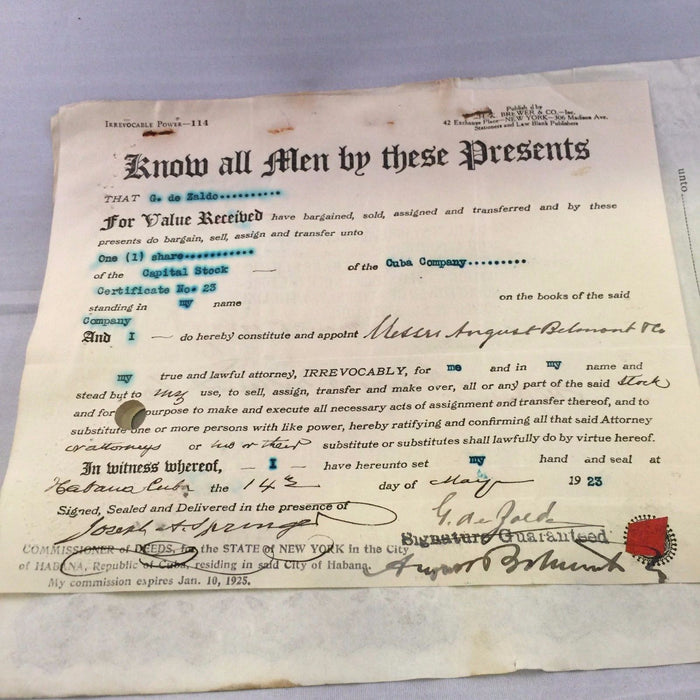 IRREVOCABLE POWER—114
Publish d by
BREWER & CO.—Inc.
42 Exchange Place—NEW YORK—306 Madison Ave.
Stationers and Law Blank Publishers
Know all Men by these Presents
THAT G. de Zaldo..........
For Value Received have bargained, sold, assigned and transferred and by these
presents do bargain, sell, assign and transfer unto
One (1) share...........
of the Capital Stock — of the Cuba Company.........
Certificate No. 23
standing in my name on the books of the said
Company
And I — do hereby constitute and appoint Messrs August Belmont & Co
my true and lawful attorney, IRREVOCABLY, for me and in my name and
stead but to my use, to sell, assign, transfer and make over, all or any part of the said stock
and for purpose to make and execute all necessary acts of assignment and transfer thereof, and to
substitute one or more persons with like power, hereby ratifying and confirming all that said Attorney
or attorneys or his or their substitute or substitutes shall lawfully do by virtue hereof.
In witness whereof, — I — have hereunto set my hand and seal at
Habana Cuba the 14th day of May 1923
Signed, Sealed and Delivered in the presence of
Joseph A. Springer G. de Zaldo
Signature Guaranteed
COMMISSIONER of DEEDS, for the STATE of NEW YORK in the City
of HABANA, Republic of Cuba, residing in said City of Habana.
August Belmont
My commission expires Jan. 10, 1925.
unto